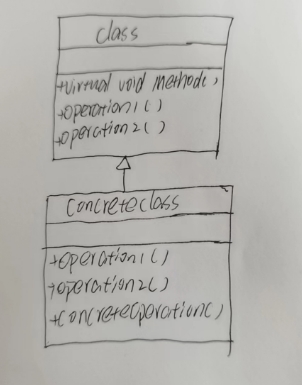 class
+virtual void method()
+operation1()
+operation2()
Concreteclass
+operation1()
+operation2()
+concreteOperation()